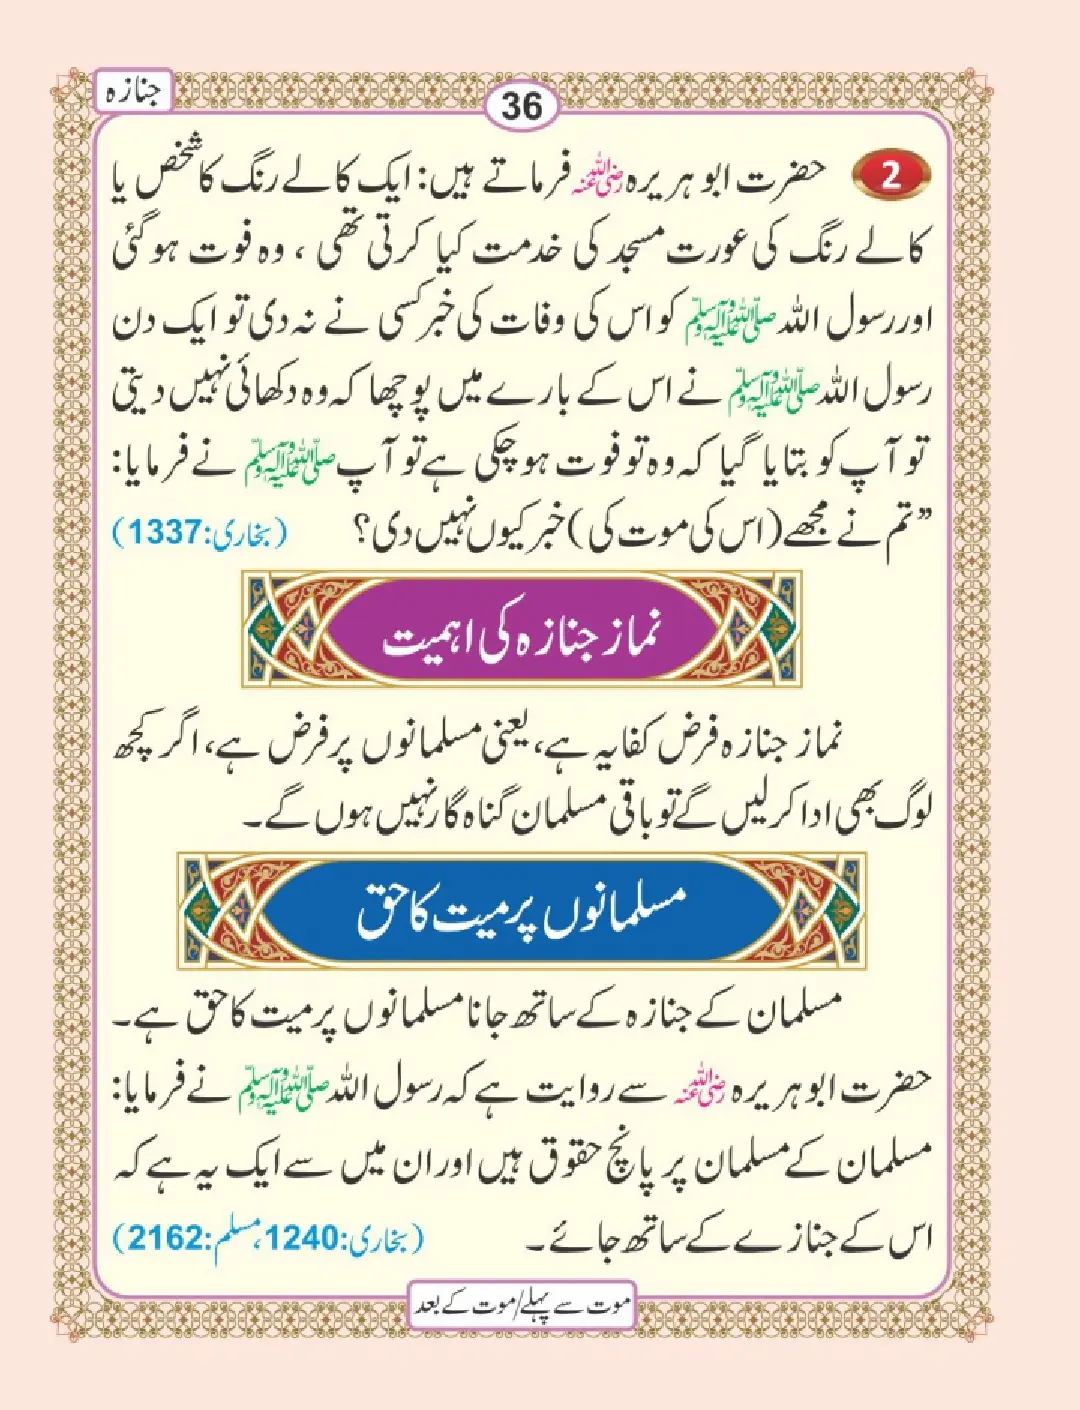 جنازہ
36
2 حضرت ابو ہریرہ رضی اللہ عنہ فرماتے ہیں: ایک کالے رنگ کا شخص یا
کالے رنگ کی عورت مسجد کی خدمت کیا کرتی تھی ، وہ فوت ہوگئی
اور رسول اللہ صلی اللہ علیہ وآلہ وسلم کو اس کی وفات کی خبر کسی نے نہ دی تو ایک دن
رسول اللہ صلی اللہ علیہ وآلہ وسلم نے اس کے بارے میں پوچھا کہ وہ دکھائی نہیں دیتی
تو آپ کو بتایا گیا کہ وہ تو فوت ہو چکی ہے تو آپ صلی اللہ علیہ وآلہ وسلم نے فرمایا:
”تم نے مجھے (اس کی موت کی) خبر کیوں نہیں دی؟ (بخاری:1337)
نماز جنازہ کی اہمیت
نماز جنازہ فرض کفایہ ہے، یعنی مسلمانوں پر فرض ہے، اگر کچھ
لوگ بھی ادا کر لیں گے تو باقی مسلمان گناہ گار نہیں ہوں گے۔
مسلمانوں پر میت کا حق
مسلمان کے جنازہ کے ساتھ جانا مسلمانوں پر میت کا حق ہے۔
حضرت ابو ہریرہ رضی اللہ عنہ سے روایت ہے کہ رسول اللہ صلی اللہ علیہ وآلہ وسلم نے فرمایا:
مسلمان کے مسلمان پر پانچ حقوق ہیں اور ان میں سے ایک یہ ہے کہ
اس کے جنازے کے ساتھ جائے۔ (بخاری:1240، مسلم:2162)
موت سے پہلے/موت کے بعد